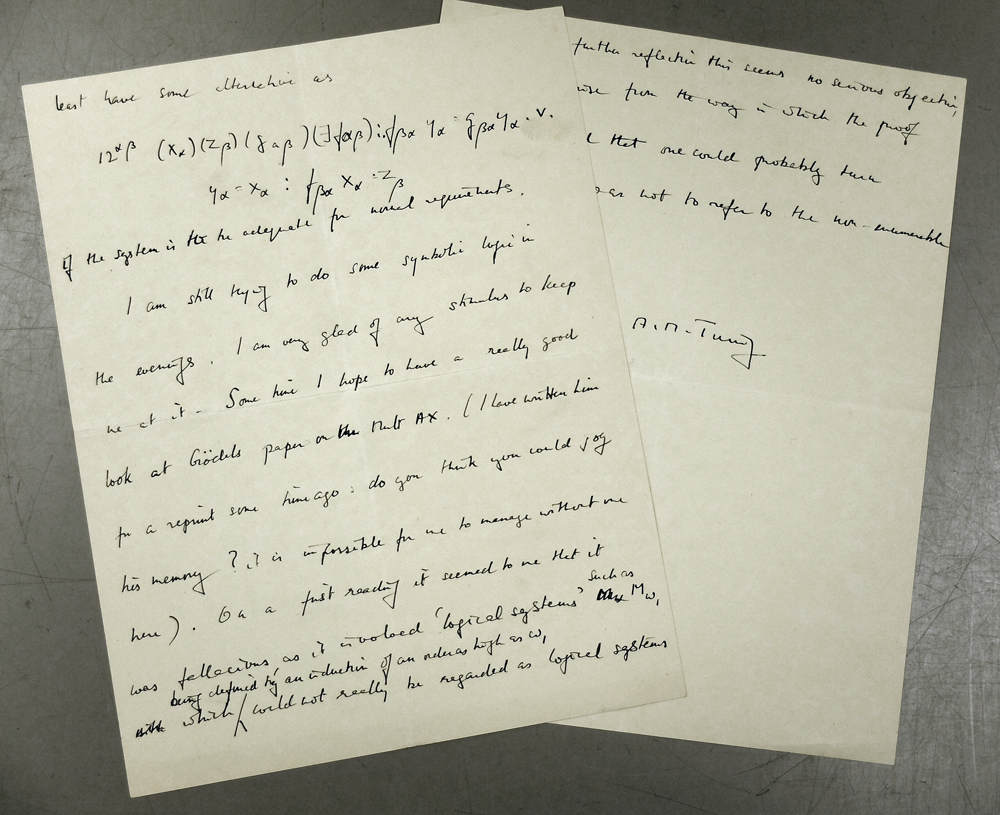 least have some alteration as
12^αβ (x_α)(z_β)(g_αβ)(∃f_αβ) : f_βα y_α = g_βα y_α . v.
y_α = x_α : f_βα x_α = z_β
if the system is to be adequate for normal requirements.
I am still trying to do some symbolic logic in
the evenings. I am very glad of any stimulus to keep
me at it - Some time I hope to have a really good
look at Gödels paper on the Mult Ax. (I have written him
for a reprint some time ago: do you think you could jog
his memory? it is impossible for me to manage without one
here). On a first reading it seemed to me that it
was fallacious, as it involved 'logical systems' such as M_ω₁
being defined by an induction of an order as high as ω₁
which could not really be regarded as logical systems
further reflection this seems no serious objection,
from the way in which the proof
that one could probably turn
as not to refer to the non-enumerable
A. M. Turing